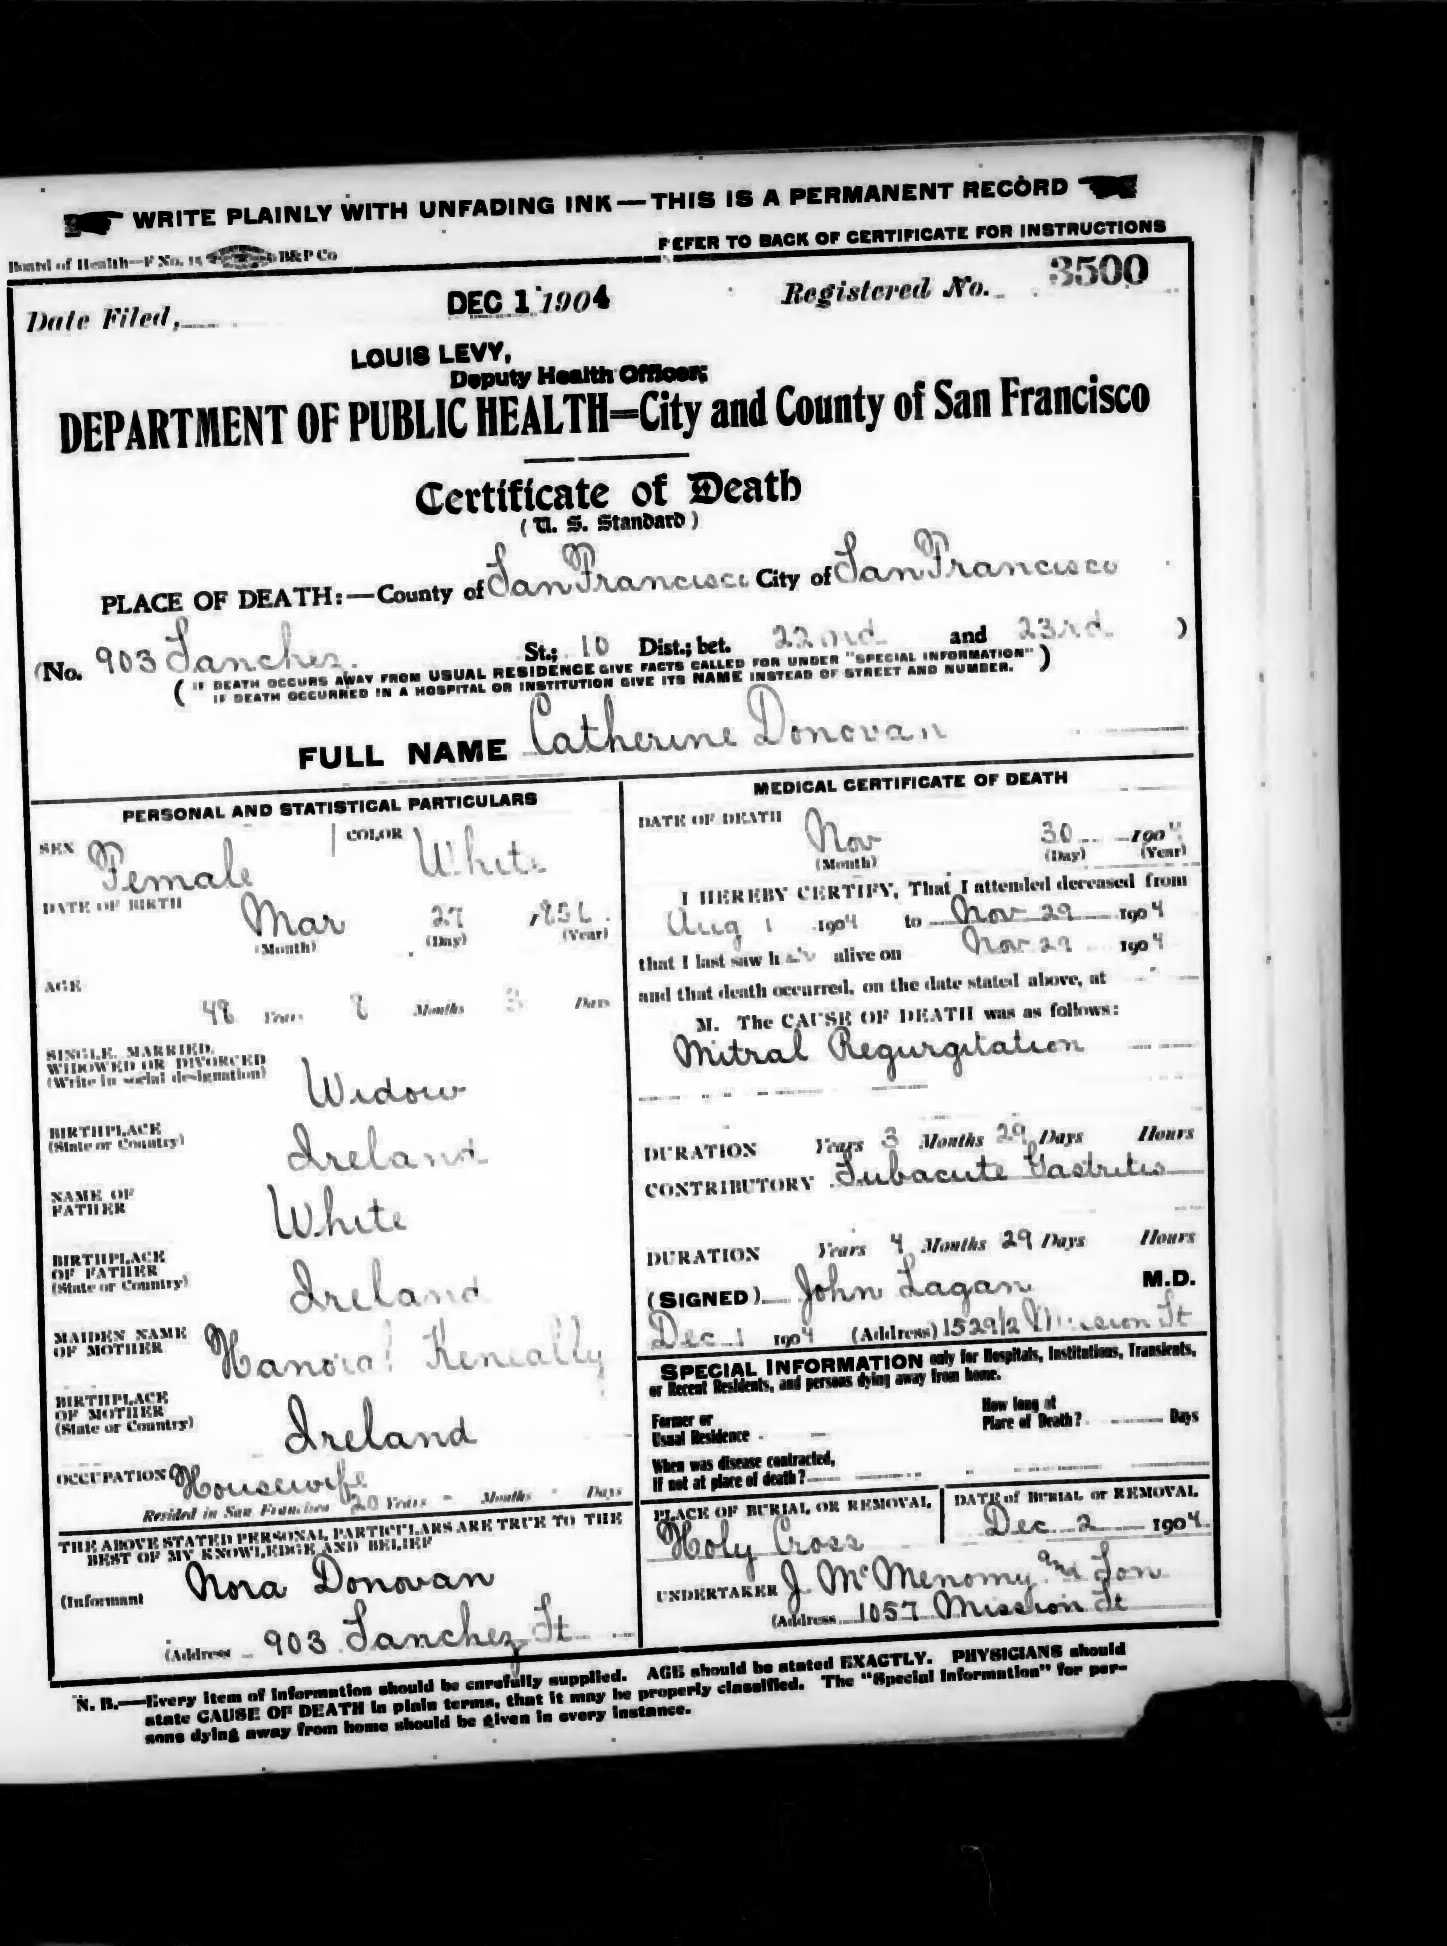 WRITE PLAINLY WITH UNFADING INK—THIS IS A PERMANENT RECORD
REFER TO BACK OF CERTIFICATE FOR INSTRUCTIONS
Board of Health—F No. 14 B&P Co
Date Filed, DEC 1 1904 Registered No. 3500
LOUIS LEVY,
Deputy Health Officer;
DEPARTMENT OF PUBLIC HEALTH=City and County of San Francisco
Certificate of Death
(U. S. Standard)
PLACE OF DEATH:—County of San Francisco City of San Francisco
(No. 903 Sanchez. St.; 10 Dist.; bet. 22nd and 23rd )
( IF DEATH OCCURS AWAY FROM USUAL RESIDENCE GIVE FACTS CALLED FOR UNDER "SPECIAL INFORMATION" )
IF DEATH OCCURRED IN A HOSPITAL OR INSTITUTION GIVE ITS NAME INSTEAD OF STREET AND NUMBER.
FULL NAME Catherine Donovan
PERSONAL AND STATISTICAL PARTICULARS
SEX Female COLOR White
DATE OF BIRTH Mar 27 1856.
(Month) (Day) (Year)
AGE
48 Years 8 Months 3 Days
SINGLE, MARRIED,
WIDOWED OR DIVORCED
(Write in social designation) Widow
BIRTHPLACE
(State or Country) Ireland
NAME OF
FATHER White
BIRTHPLACE
OF FATHER
(State or Country) Ireland
MAIDEN NAME
OF MOTHER Hanora Keneally
BIRTHPLACE
OF MOTHER
(State or Country) Ireland
OCCUPATION Housewife
Resided in San Francisco 20 Years - Months - Days
THE ABOVE STATED PERSONAL PARTICULARS ARE TRUE TO THE
BEST OF MY KNOWLEDGE AND BELIEF
(Informant Nora Donovan
(Address 903 Sanchez St
MEDICAL CERTIFICATE OF DEATH
DATE OF DEATH Nov 30 1904
(Month) (Day) (Year)
I HEREBY CERTIFY, That I attended deceased from
Aug 1 1904 to Nov 29 1904
that I last saw her alive on Nov 29 1904
and that death occurred, on the date stated above, at -
M. The CAUSE OF DEATH was as follows:
Mitral Regurgitation
DURATION Years 3 Months 29 Days Hours
CONTRIBUTORY Subacute Gastritis
DURATION Years 4 Months 29 Days Hours
(SIGNED) John Lagan M.D.
Dec 1 1904 (Address) 1529 1/2 Mission St
SPECIAL INFORMATION only for Hospitals, Institutions, Transients,
or Recent Residents, and persons dying away from home.
Former or
Usual Residence
How long at
Place of Death? Days
When was disease contracted,
If not at place of death?
PLACE OF BURIAL OR REMOVAL
Holy Cross
DATE of BURIAL or REMOVAL
Dec 2 1904
UNDERTAKER J. McMenomy and Son
(Address 1057 Mission St
N. B.—Every item of information should be carefully supplied. AGE should be stated EXACTLY. PHYSICIANS should
state CAUSE OF DEATH in plain terms, that it may be properly classified. The "Special Information" for per-
sons dying away from home should be given in every instance.